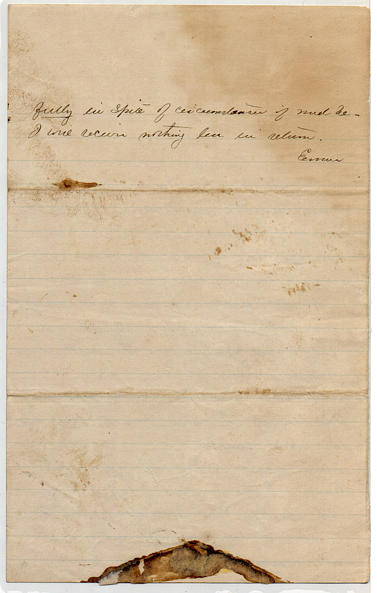 fully in spite of circumstances if need be -
I will receive nothing less in return.
Emma